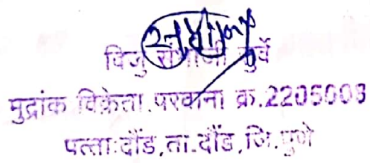 विजु संभाजी सुर्वे
मुद्रांक विक्रेता.परवाना क्र.2205008
पत्ता:दौंड,ता.दौंड,जि.पुणे